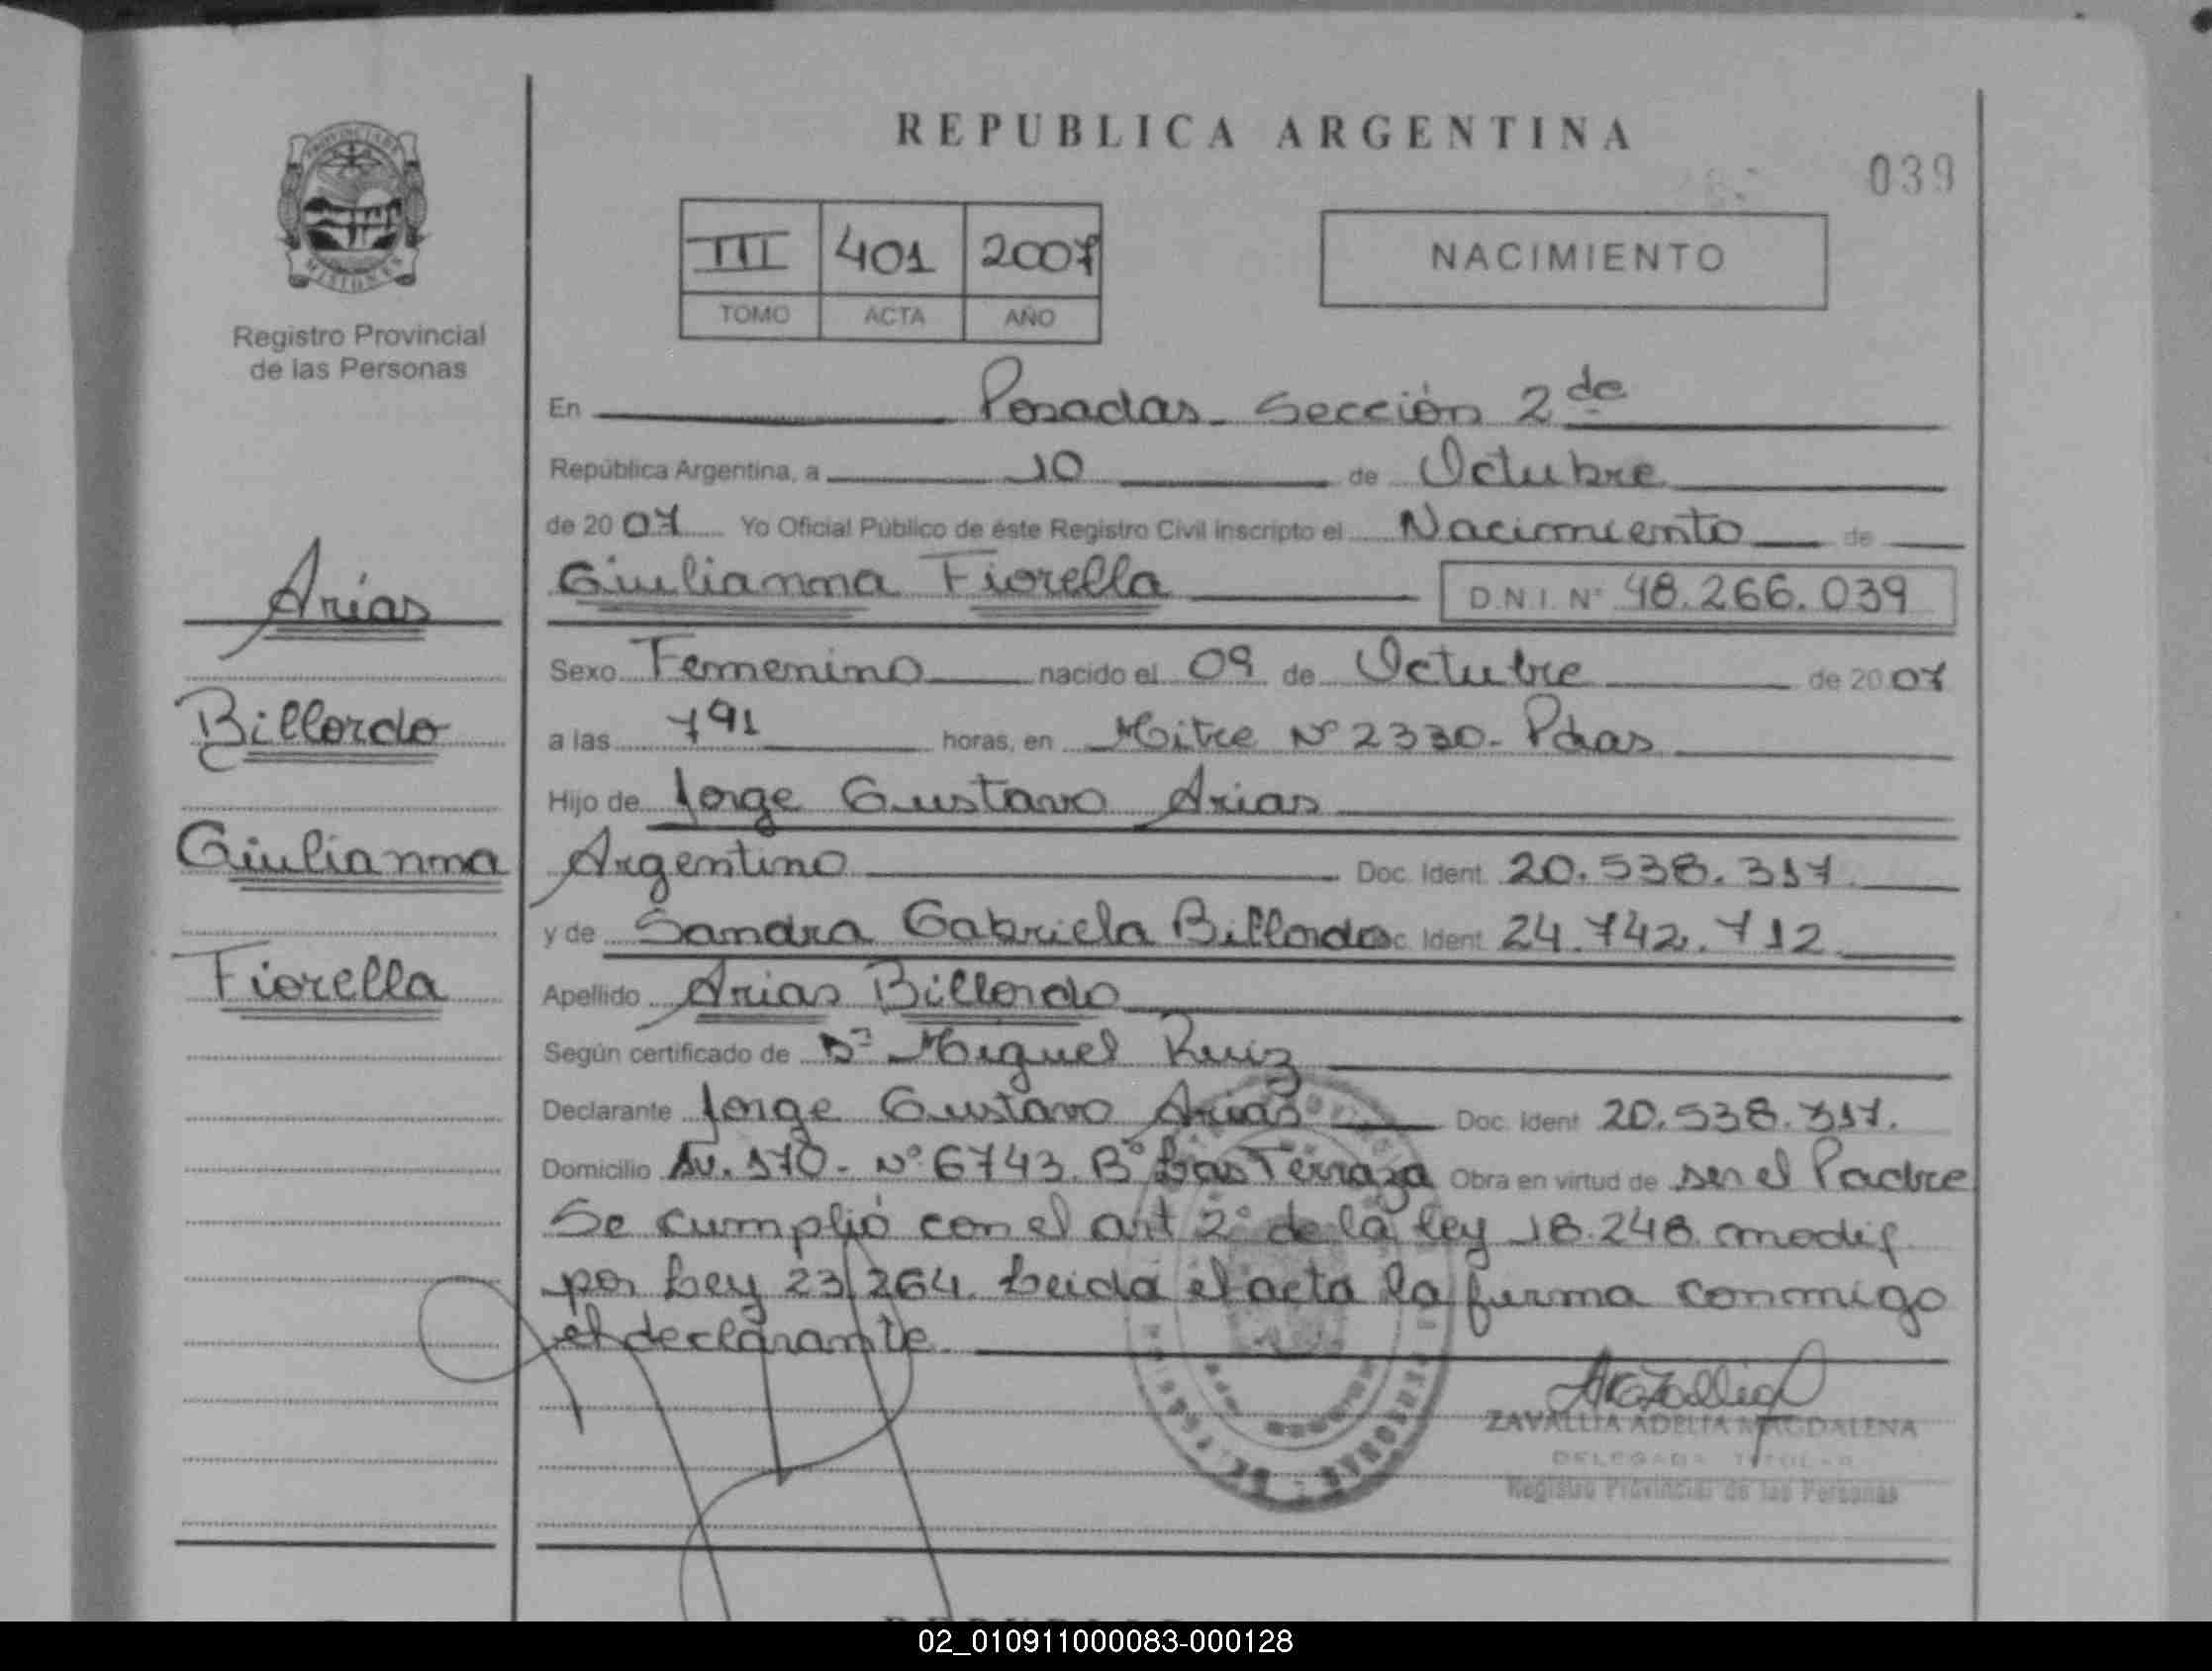 REPUBLICA ARGENTINA
039
PROVINCIA DE
MISIONES
Registro Provincial
de las Personas
III 401 2007
TOMO ACTA AÑO
NACIMIENTO
En Posadas - Sección 2 da
República Argentina, a 10 de Octubre
de 20 07 Yo Oficial Público de éste Registro Civil inscripto el Nacimiento de
Giulianna Fiorella D.N.I. Nº 48.266.039
Sexo Femenino nacido el 09 de Octubre de 20 07
a las 791 horas, en Mitre Nº 2330 - Pdas
Hijo de Jorge Gustavo Arias
Argentino Doc. Ident. 20.538.317
y de Sandra Gabriela Billordo c. Ident 24.742.712
Apellido Arias Billordo
Según certificado de Dr Miguel Ruiz
Declarante Jorge Gustavo Arias Doc. Ident 20.538.317.
Domicilio Av. 170 - Nº 6743. Bº Las Terraza Obra en virtud de ser el Padre
Se cumplió con el art 2º de la ley 18.248 modif
por Ley 23.264. Leida el acta la firma conmigo
el declarante
Arias
Billordo
Giulianna
Fiorella
ZAVALLIA ADELIA MAGDALENA
DELEGADA TITULAR
Registro Provincial de las Personas
02_010911000083-000128